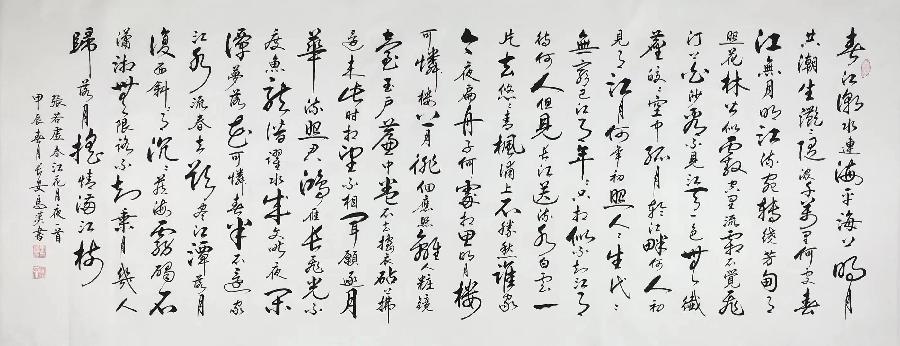 春江潮水連海平海上明月
共潮生灩灩隨波千萬里何處春
江無月明江流宛轉繞芳甸月
照花林皆似霰空里流霜不覺飛
汀上白沙看不見江天一色無纖
塵皎皎空中孤月輪江畔何人初
見月江月何年初照人人生代代
無窮已江月年年只相似不知江月
待何人但見長江送流水白雲一
片去悠悠青楓浦上不勝愁誰家
今夜扁舟子何處相思明月樓
可憐樓上月徘徊應照離人妝鏡
臺玉戶簾中卷不去擣衣砧上拂
還來此時相望不相聞願逐月
華流照君鴻雁長飛光不
度魚龍潛躍水成文昨夜閑
潭夢落花可憐春半不還家
江水流春去欲盡江潭落月
復西斜斜月沉沉藏海霧碣石
瀟湘無限路不知乘月幾人
歸落月搖情滿江樹
張若虛春江花月夜一首
甲辰春月長安書